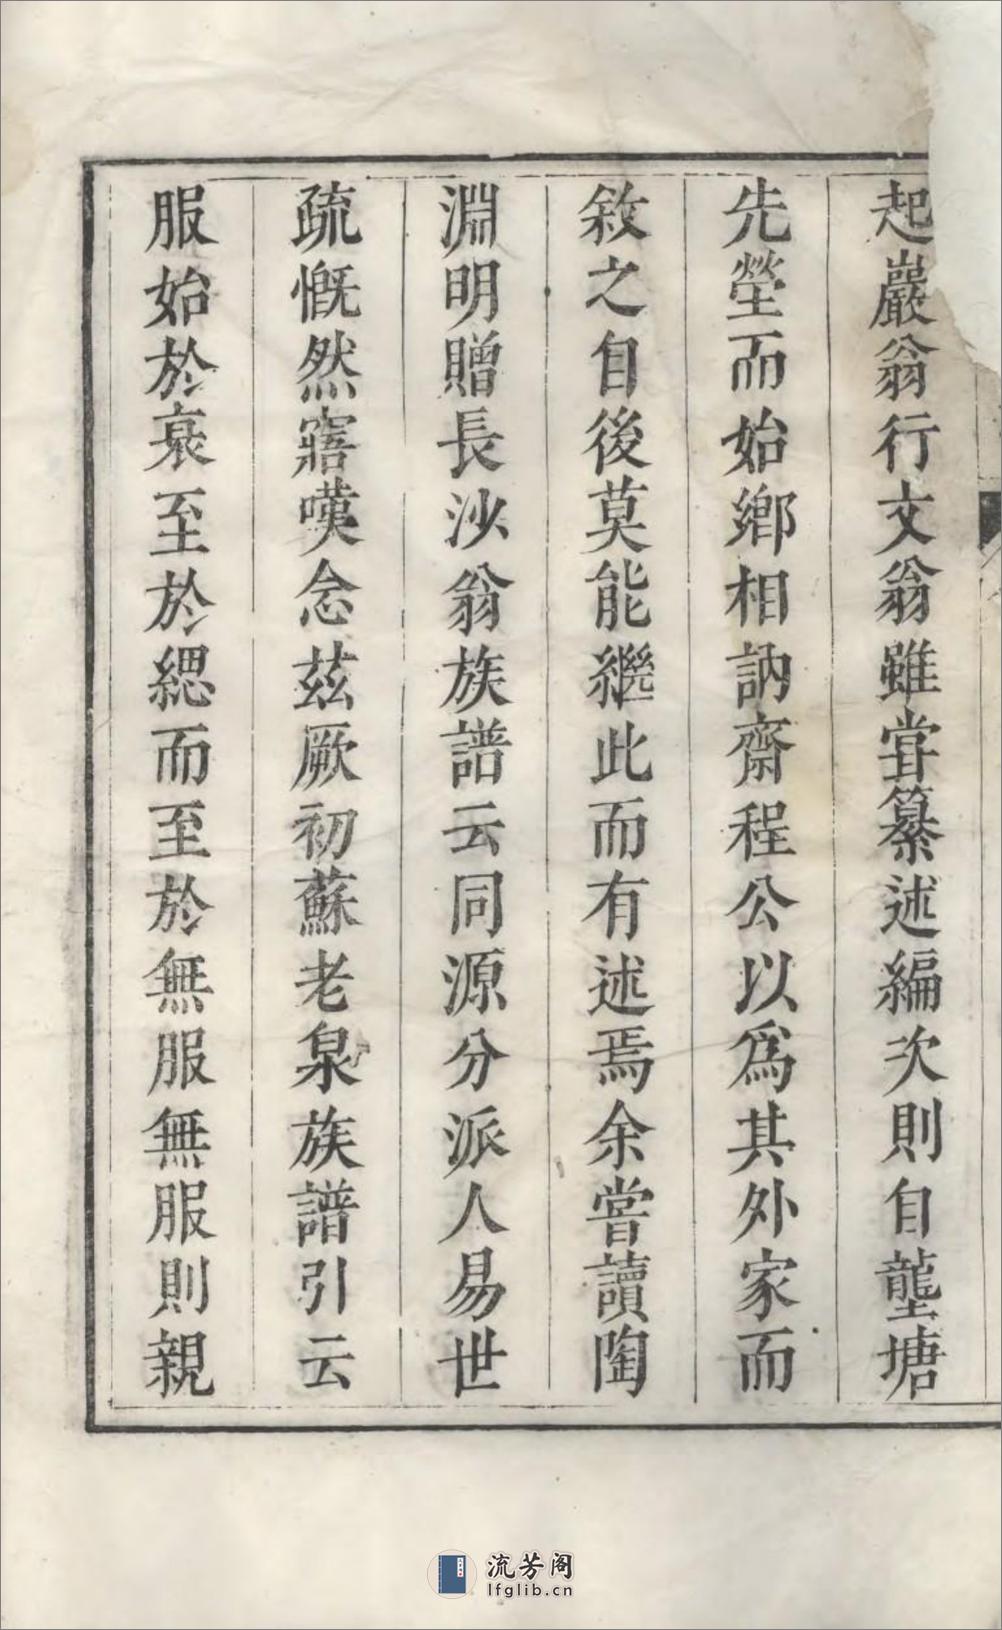 起巖翁行文翁雖甞纂述編次則自壟塘
先塋而始鄉相訥齋程公以爲其外家而
敘之自後莫能繼此而有述焉余嘗讀陶
淵明贈長沙翁族譜云同源分派人易世
疏慨然寤嘆念茲厥初蘇老泉族譜引云
服始於衰至於緦而至於無服無服則親
流芳阁
lfglib.cn